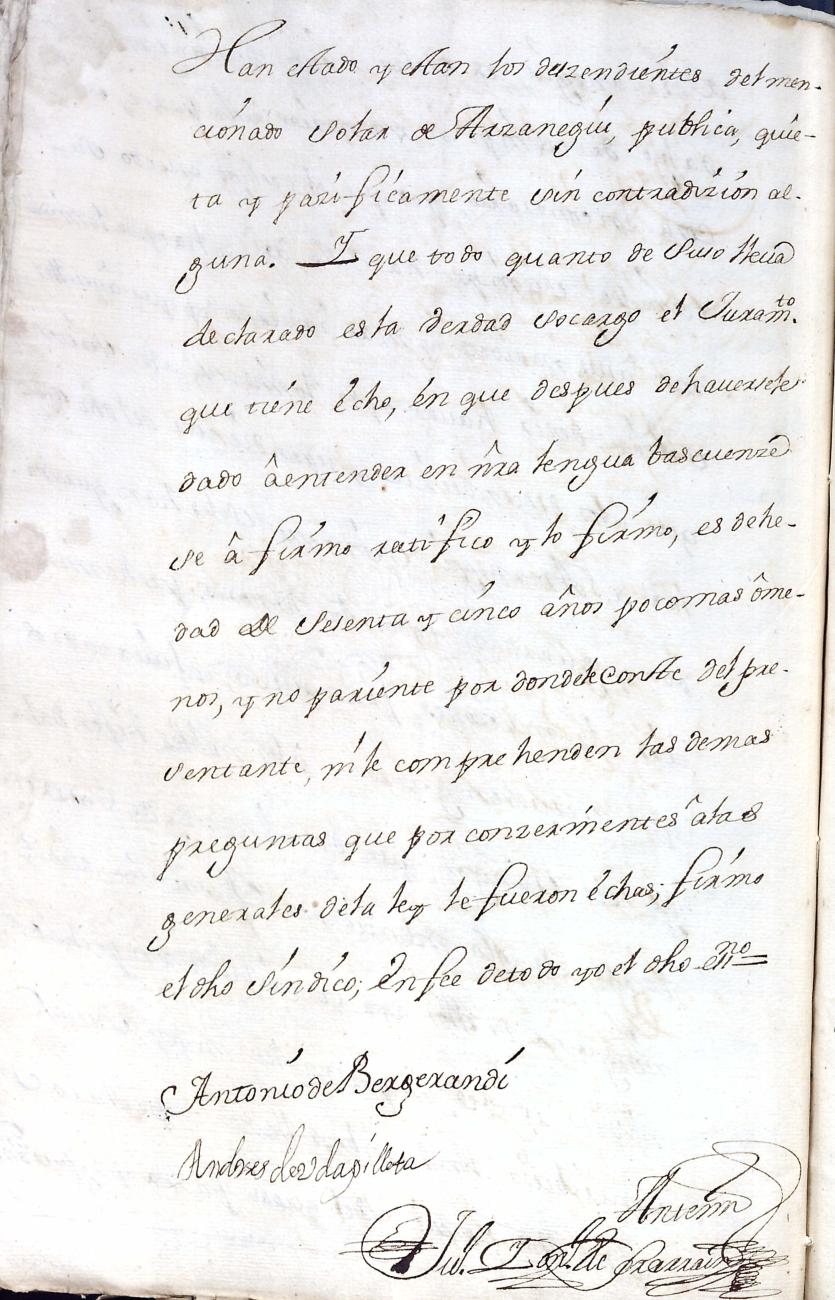 Han estado y estan los deszendientes del men-
cionado Solar de Arzanegui, publica, quie-
ta y pazificamente sin contradizion al-
guna. Y que todo quanto de suso lleua
declarado es la verdad socargo el Juramto.
que tiene êcho, en que despues de haversele
dado âentender en ñra lengua bascuenze
se â firmo ratifico y lo firmo, es de he-
dad de Sesenta y cinco años poco mas ôme-
nos, y no pariente por donde le Conste del pre-
sentante, ni le comprehenden las demas
preguntas que por conzernientes âlas
generales dela ley le fueron êchas; firmo
el dho Síndico; En fee de todo yo el dho essno
Antonio de Bergerandi
Andres de vdapilleta
Antemi